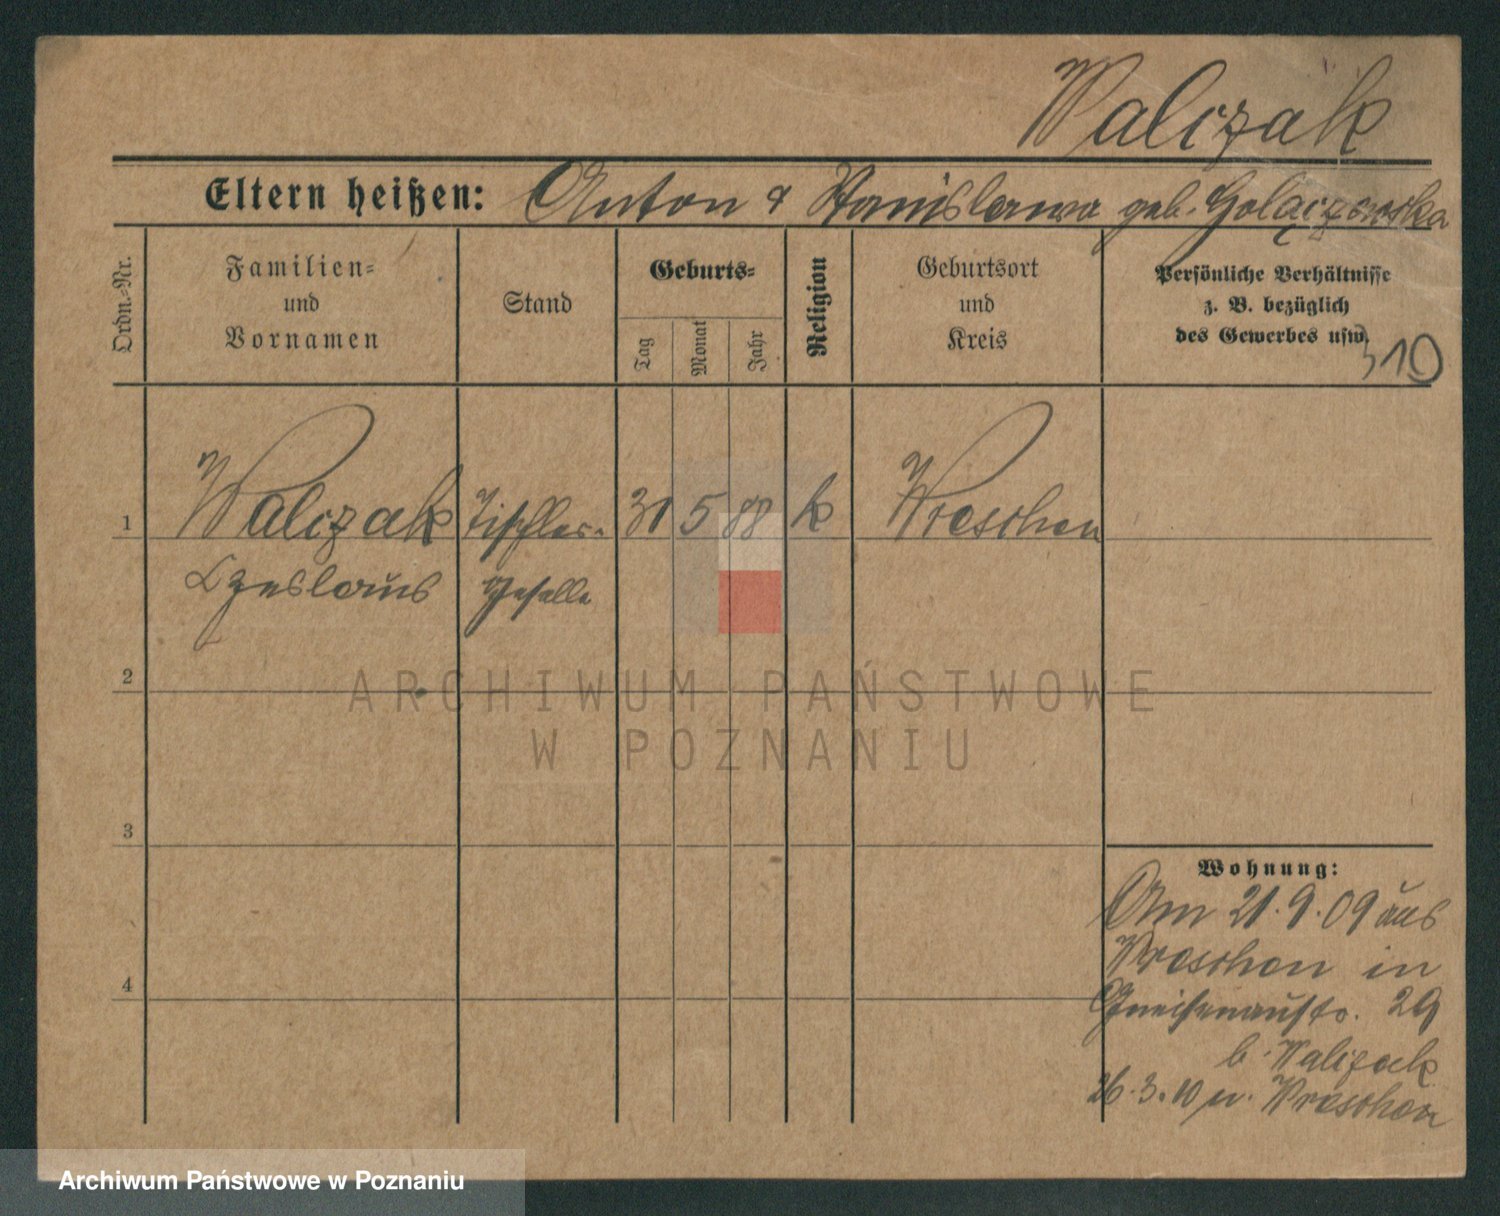 Walczak
Eltern heißen: Anton & Stanislawa geb. Golączewska
Ordn.-Nr.
Familien-
und
Vornamen
Stand
Geburts-
Tag
Monat
Jahr
Religion
Geburtsort
und
Kreis
Persönliche Verhältnisse
z. B. bezüglich
des Gewerbes usw.
310
1
Walczak
Tischler-
31
5
88
k
Wreschen
Czeslaus
Geselle
2
3
4
Wohnung:
Am 21.9.09 aus
Wreschen in
Gneisenaustr. 29
b. Walczak
26.3.10 n. Wreschen
ARCHIWUM PAŃSTWOWE
W POZNANIU
Archiwum Państwowe w Poznaniu